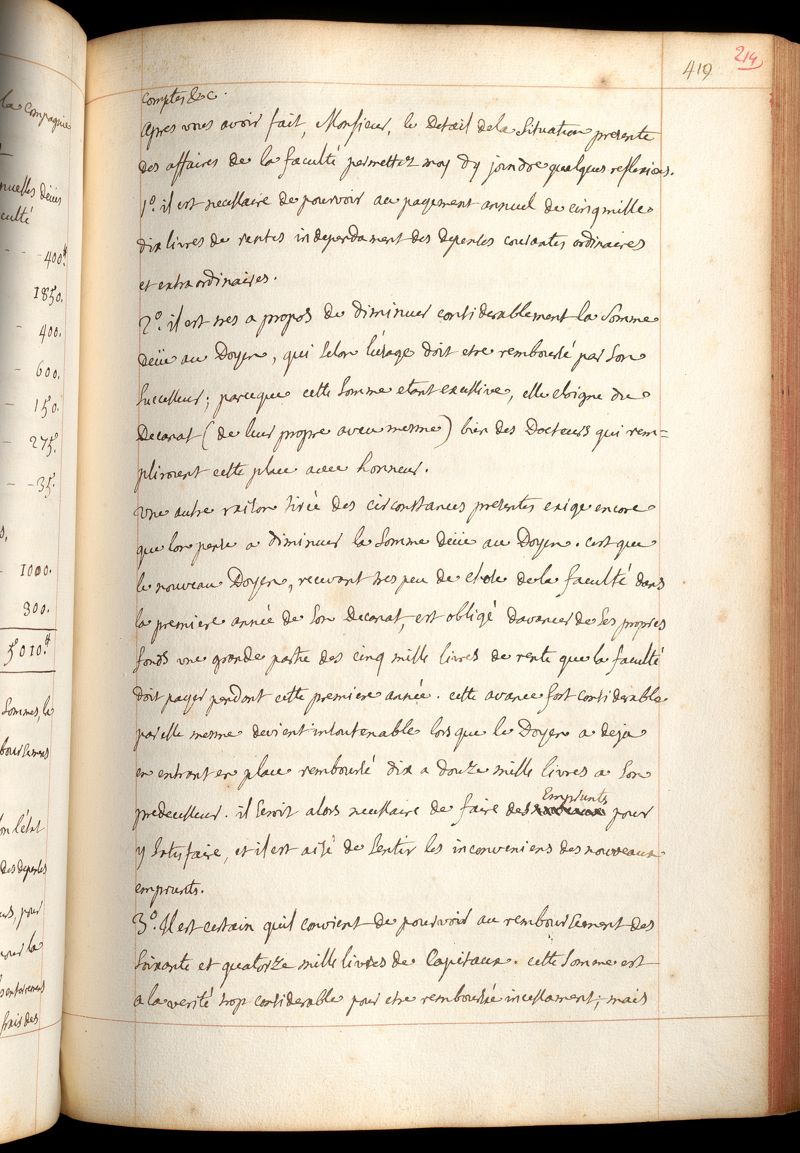 la compagnie
nuelles deües
culté
400.ᵗᵗ
1850.
400.
600.
150.
275.
35.
1000.
300.
5010.ᵗᵗ
sommes, le
boursemens
on l'état
des depenses
urs, pour
frais des
419
214
comptes &c.
Apres vous avoir fait, Monsieur, le detail de la situation presente
des affaires de la faculté permettez moy dy joindre quelques reflexions.
1.º il est necessaire de pourvoir au payement annuel de cinq mille
dix livres de rentes independament des depenses courantes ordinaires
et extraordinaires.
2.º il est tres a propos de diminuer considerablement la somme
deüe au Doyen, qui selon l'usage doit etre remboursé par son
successeur; parceque cette somme etant excessive, elle eloigne du
Decanat (de leur propre aveu mesme) bien des Docteurs qui rem=
pliroient cette place avec honneur.
une autre raison tirée des circonstances presentes exige encore
que lon pense a diminuer la somme deüe au Doyen. cest que
le nouveau Doyen, recevant tres peu de chose de la faculté dans
la premiere année de son Decanat, est obligé davancer de ses propres
fonds une grande partie des cinq mille livres de rente que la faculté
doit payer pendant cette premiere année. cette avance fort considerable
par elle mesme devient insoutenable lorsque le Doyen a deja
en entrant en place remboursé dix a douze mille livres a son
predecesseur. il seroit alors necessaire de faire des Emprunts pour
y satisfaire, et il est aisé de sentir les inconveniens des nouveaux
emprunts.
3.º Il est certain quil convient de pourvoir au remboursement des
soixante et quatorze mille livres de Capitaux. cette somme est
a la verité trop considerable pour etre remboursée incessament; mais